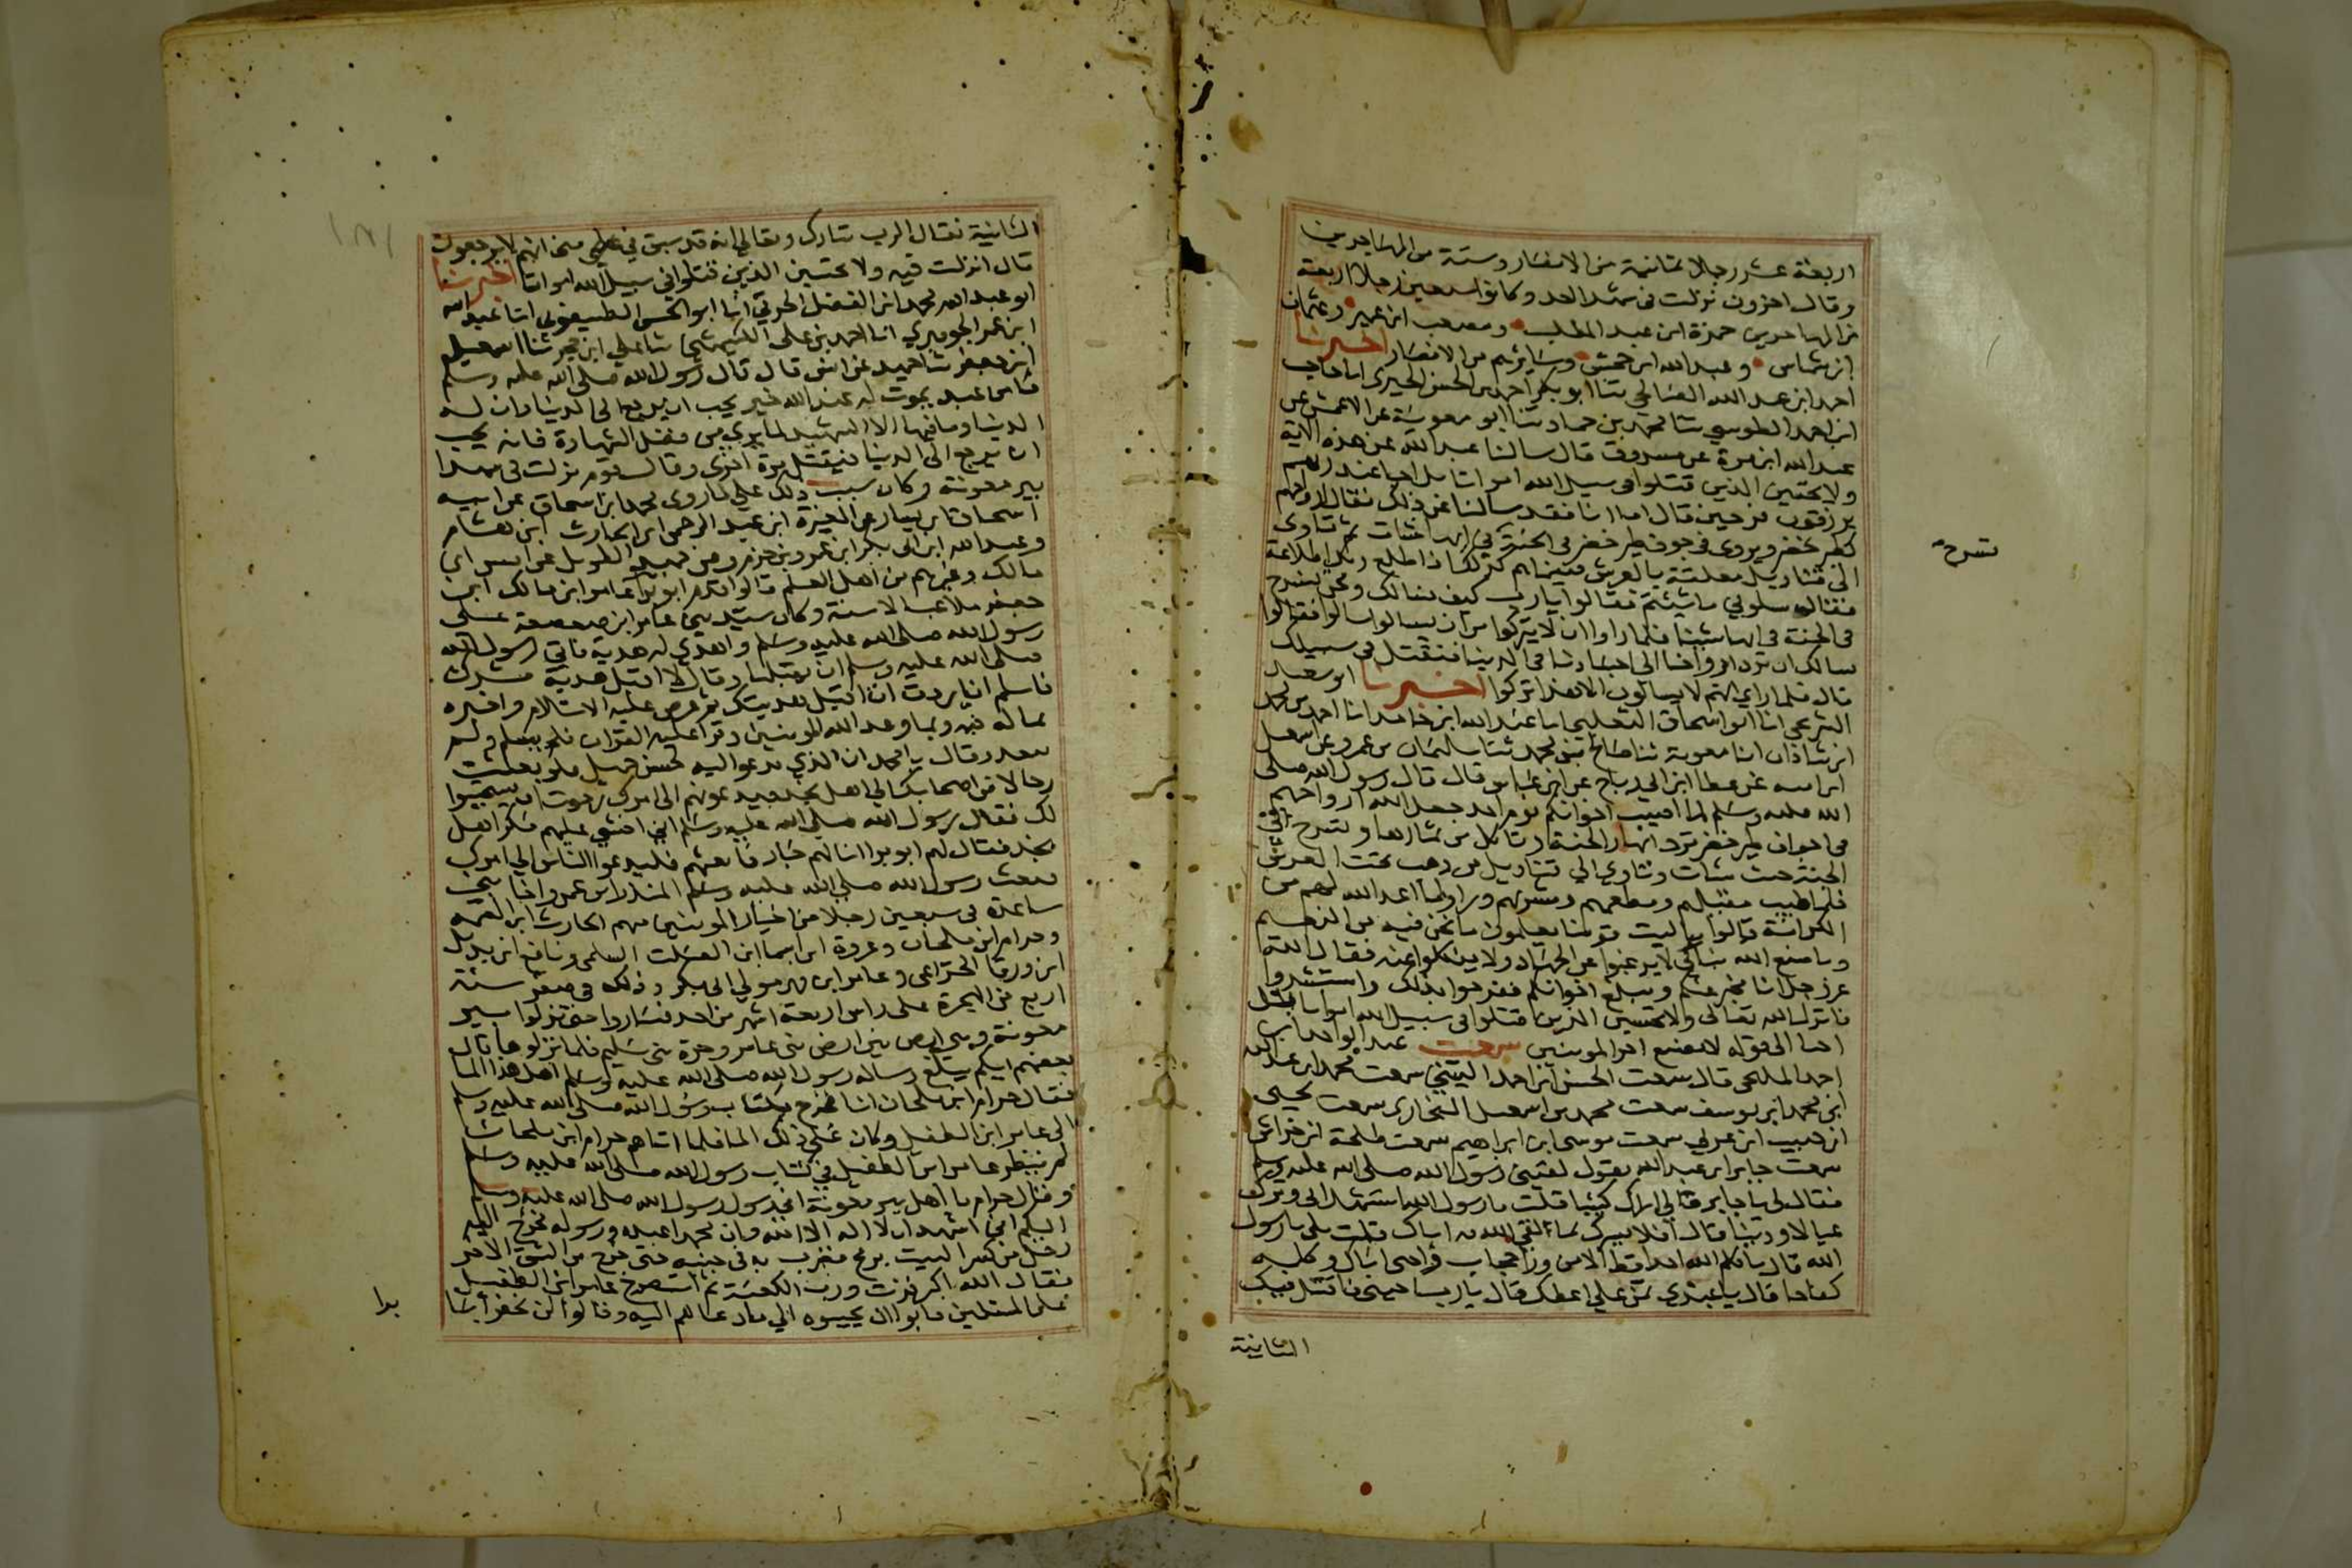 اربعة عشر رجلا ثمانية من الانصار وستة من المهاجرين
وقال اخرون نزلت في شهدا احد وكانوا سبعين رجلا اربعة
من المهاجرين حمزة ابن عبد المطلب ومصعب ابن عمير وعثمان
ابن شماس وعبد الله ابن جحش وسايرهم من الانصار اخبرنا
احمد ابن عبد الله الصالحي ثنا ابو بكر احمد بن الحسن الحيري انا حاجب
ابن احمد الطوسي ثنا محمد بن حماد ثنا ابو معوية عن الاعمش عن
عبد الله ابن مرة عن مسروق قال سالنا عبد الله عن هذه الاية
ولا تحسبن الذين قتلوا في سبيل الله امواتا بل احيا عند ربهم
يرزقون فرحين قال اما انا فقد سالنا عن ذلك فقال ارواحهم
كطير خضر ويروى في جوف طير خضر في الجنة في ايها شات ثم تاوى
الى قناديل معلقة بالعرش فبينما هم كذلك اذ اطلع ربك اطلاعة
فقال سلوني ما شيتم فقالوا يا رب كيف نسالك ونحن نسرح
في الجنة في ايها شينا فلما راوا ان لا يتركوا من ان يسالوا سالوا فقالوا
نسالك ان ترد ارواحنا الى اجسادنا في الدنيا فنقتل في سبيلك
قال فلما راى انهم لا يسالون الا هذا تركوا اخبرنا ابو سعيد
الشريحي انا ابو اسحاق الثعلبي انا عبد الله ابن حامد انا احمد بن محمد
ابن شاذان انا معوية ثنا صالح بن محمد ثنا سليمان بن عمرو عن اسمعيل
ابن اميه عن عطا ابن ابي رباح عن ابن عباس قال قال رسول الله صلى
الله عليه وسلم لما اصيب اخوانكم يوم احد جعل الله ارواحهم
في اجواف طير خضر ترد انهار الجنة وتاكل من ثمارها وتسرح في
الجنة حيث شات وتاوي الي قناديل من ذهب تحت العرش
فلما طيب مقيلهم ومطعمهم ومشربهم وراوا ما اعد الله لهم من
الكرامة قالوا يا ليت قومنا يعلمون ما نحن فيه من النعيم
وما صنع الله بنا كي لا يرغبوا عن الجهاد ولا ينكلوا عنه فقال الله
عز وجل انا مخبر عنكم ومبلغ اخوانكم ففرحوا بذلك واستبشروا
فانزل الله تعالى ولا تحسبن الذين قتلوا في سبيل الله امواتا بل
احيا الى قوله لا يضيع اجر المومنين سمعت عبد الواحد ابن
احمد المليحي قال سمعت الحسن ابن احمد سمعت محمد ابن عبد الله
ابن محمد ابن يوسف سمعت محمد بن اسمعيل البخارى سمعت يحيى
ابن حبيب ابن عربي سمعت موسى ابن ابراهيم سمعت طلحة ابن خراش
سمعت جابر ابن عبد الله يقول لقيني رسول الله صلى الله عليه وسلم
فقال لى يا جابر مالي اراك كييبا قلت يا رسول الله استشهد ابي وترك
عيالا ودينا قال افلا ابشرك بما لقي الله به اباك قلت بلى يا رسول
الله قال ما كلم الله احدا قط الا من ورا حجاب واحيى اباك وكلمه
كفاحا قال يا عبدى تمن علي اعطك قال يا رب احيني فاقتل فيك
الثانية
تسرح
الثانية فقال الرب تبارك وتعالى انه قد سبق في علمي منى انهم لا يرجعون
قال انزلت فيه ولا تحسبن الذين قتلوا في سبيل الله امواتا اخبرنا
ابو عبد الله محمد ابن الفضل الخرقي انا ابو الحسن الطيسفوني انا عبد الله
ابن عمر الجوهري انا احمد بن على الكشميهني ثنا علي ابن حجر ثنا اسمعيل
ابن جعفر ثنا حميد عن انس قال قال رسول الله صلى الله عليه وسلم
ما من عبد يموت له عند الله خير يحب ان يرجع الى الدنيا وان له
الدنيا وما فيها الا الشهيد لما يرى من فضل الشهادة فانه يحب
ان يرجع الى الدنيا فيقتل مرة اخرى وقال قوم نزلت في شهدا
بير معونة وكان سبب ذلك على ما روى محمد ابن اسحاق عن ابيه
اسحاق ابن يسار عن المغيرة ابن عبد الرحمن ابن الحارث ابن هشام
وعبد الله ابن ابى بكر ابن عمرو بن حزم وعن حميد الطويل عن انس ابن
مالك وغيرهم من اهل العلم قالوا قدم ابو برا عامر ابن مالك ابن
جعفر ملاعب الاسنة وكان سيد بني عامر ابن صعصعة على
رسول الله صلى الله عليه وسلم واهدى له هدية فابى رسول الله
صلى الله عليه وسلم ان يقبلها وقال لا اقبل هدية مشرك
فاسلم ان اردت ان اقبل هديتك ثم عرض عليه الاسلام واخبره
بما له فيه وبما وعد الله المومنين وقرا عليه القران فلم يسلم ولم
يبعد وقال يا محمد ان الذي تدعو اليه حسن جميل فلو بعثت
رجالا من اصحابك الى اهل نجد يدعونهم الى امرك رجوت ان يستجيبوا
لك فقال رسول الله صلى الله عليه وسلم اني اخشى عليهم منكر اهل
نجد فقال لهم ابو برا انا لهم جار فابعثهم فليدعوا الناس الي امرك
فبعث رسول الله صلى الله عليه وسلم المنذر ابن عمرو اخا بني
ساعدة في سبعين رجلا من خيار المومنين منهم الحارث ابن الصمه
وحرام ابن ملحان وعروة ابن اسما ابن الصلت السلمى ونافع ابن بديل
ابن ورقا الخزاعى وعامر ابن فهيره مولى ابى بكر وذلك في صفر سنة
اربع من الهجرة على راس اربعة اشهر من احد فساروا حتى نزلوا بير
معونة وهي ارض بين ارض بنى عامر وحرة بنى سليم فلما نزلوها قال
بعضهم ايكم يبلغ رسالة رسول الله صلى الله عليه وسلم اهل هذا الما
فقال حرام ابن ملحان انا فخرج بكتاب رسول الله صلى الله عليه وسلم
الى عامر ابن الطفيل وكان على ذلك الما فلما اتاهم حرام ابن ملحان
لم ينظر عامر ابن الطفيل في كتاب رسول الله صلى الله عليه وسلم
وقال حرام يا اهل بير معونة انى رسول رسول الله صلى الله عليه وسلم
اليكم اني اشهد ان لا اله الا الله وان محمدا عبده ورسوله فخرج اليه
رجل من كسر البيت برمح فضرب به في جنبه حتى خرج من الشق الاخر
فقال الله اكبر فزت ورب الكعبة ثم استصرخ عامر ابن الطفيل
على المسلمين فابوا ان يجيبوه الي ما دعاهم اليه وقالوا لن نخفر ابا
برا
١٨١